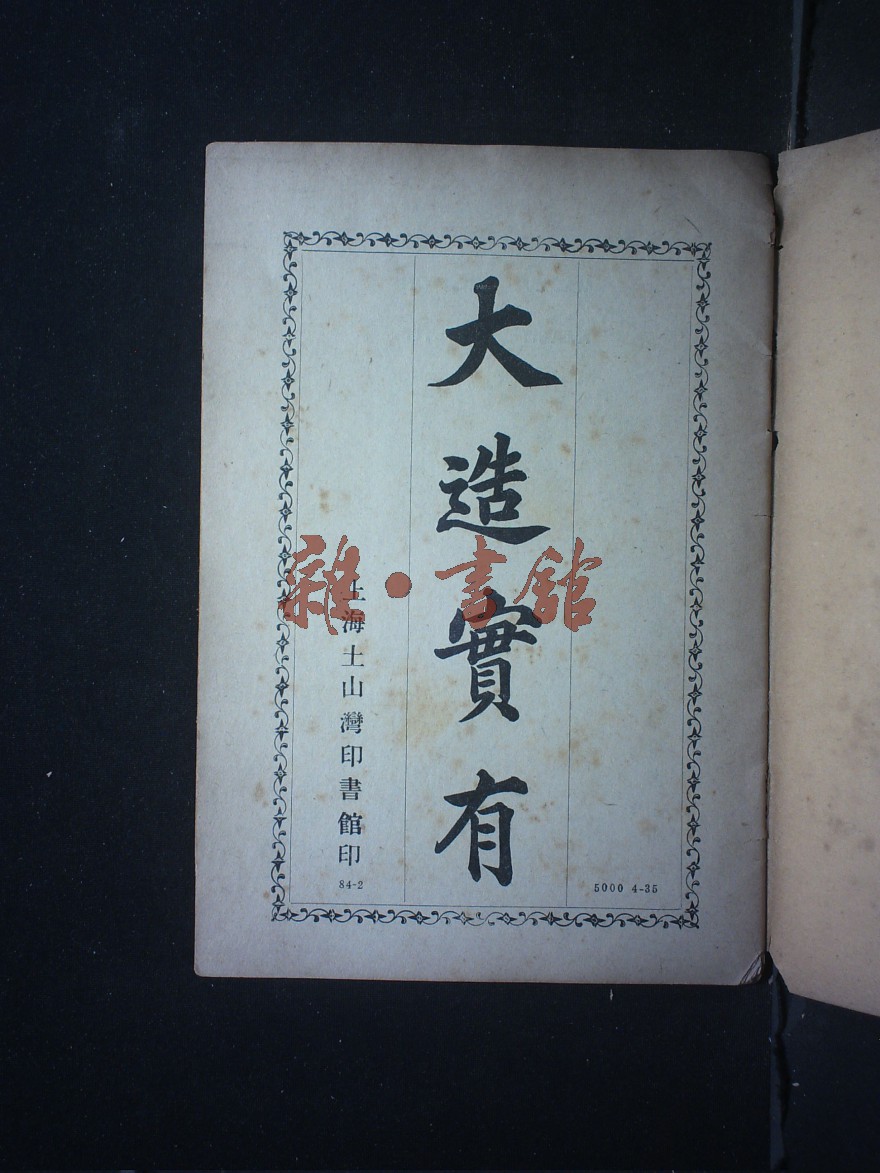 5000 4-35
大造實有
上海土山灣印書館印
84-2
雜·書館